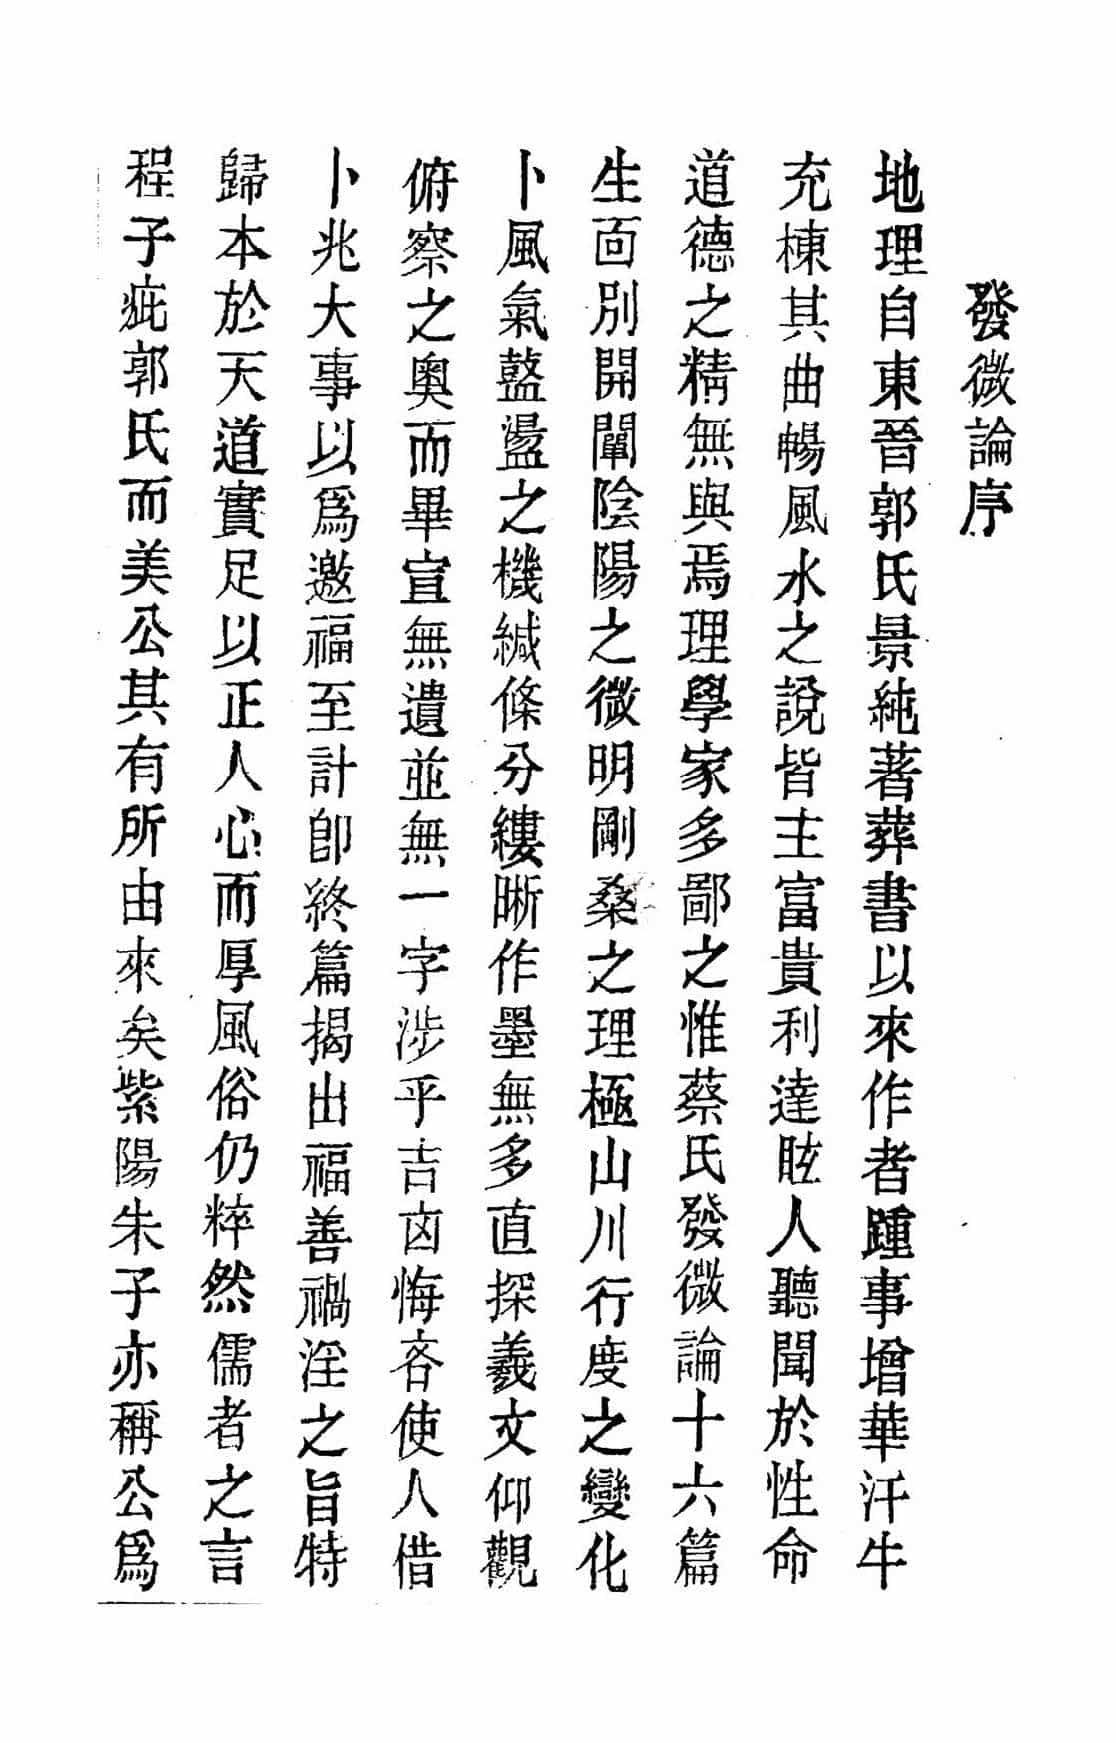 發微論序
地理自東晉郭氏景純著葬書以來作者踵事增華汗牛
充棟其曲暢風水之說皆主富貴利達眩人聽聞於性命
道德之精無與焉理學家多鄙之惟蔡氏發微論十六篇
生面別開闡陰陽之微明剛桑之理極山川行度之變化
卜風氣盪之機緘條分縷晰作墨無多直探羲文仰觀
俯察之奧而畢宣無遺並無一字涉乎吉凶悔吝使人借
卜兆大事以爲邀福至計卽終篇揭出福善禍淫之旨特
歸本於天道實足以正人心而厚風俗仍粹然儒者之言
程子疵郭氏而美公其有所由來矣紫陽朱子亦稱公爲